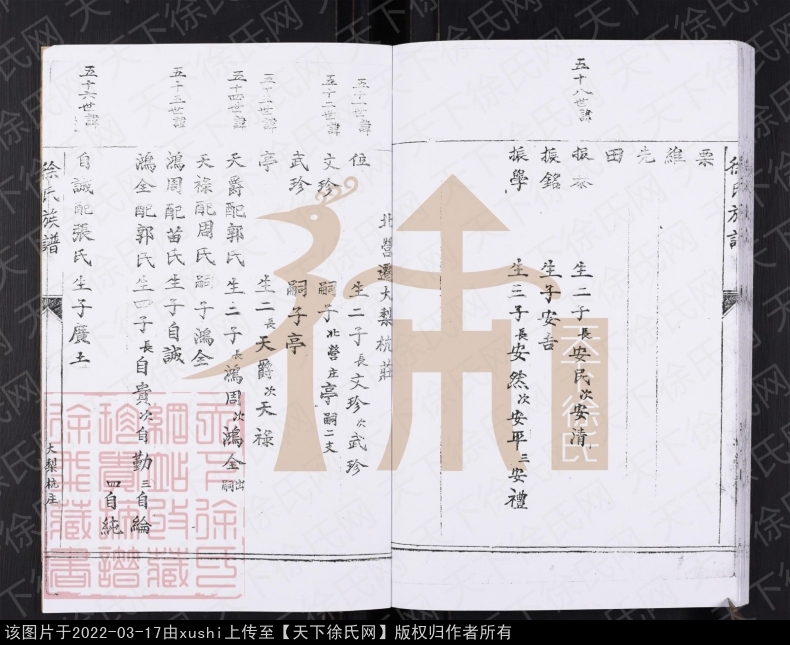 徐氏族譜
栗
維
先
田
五十八世諱
振泰 生二子長安民次安清
振銘 生子安吉
振學 生三子長安然次安平三安禮
北營遷大梨杭莊
五十一世諱
位 生二子長文珍次武珍
五十二世諱
文珍 嗣子北營庄亭嗣二支
武珍 嗣子亭
五十三世諱
亭 生二長天爵次天祿
五十四世諱
天爵配郭氏 生二子長鴻周次鴻全出嗣
天祿配周氏 嗣子鴻全
五十五世諱
鴻周配苗氏 生子自誠
鴻全配郭氏 生四子長自賓次自勤三自綸四自純
五十六世諱
自誠配張氏 生子廣土
徐氏族譜
大梨杭庄
天下徐氏
天下徐氏网
该图片于2022-03-17由xushi上传至【天下徐氏网】版权归作者所有